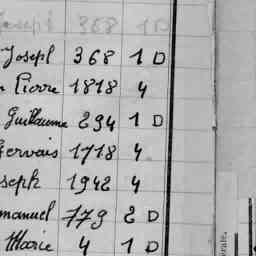 Joseph 368 1 D
Joseph 368 1 D
Pierre 1818 4
Guillaume 294 1 D
Gervais 1718 4
seph 1942 4
manuel 779 2 D
Marie 4 1 D